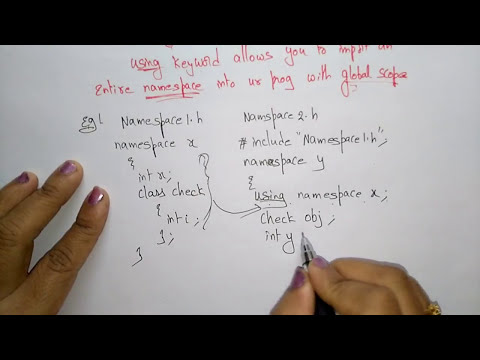 using keyword allows you to import an
entire namespace into ur prog with global scope
Eg 1
Namespace1.h
namespace x
{
int x;
class check
{
int i;
};
}
Namspace2.h
# include "Namespace1.h";
namespace y
{
using namespace x;
check obj;
int y